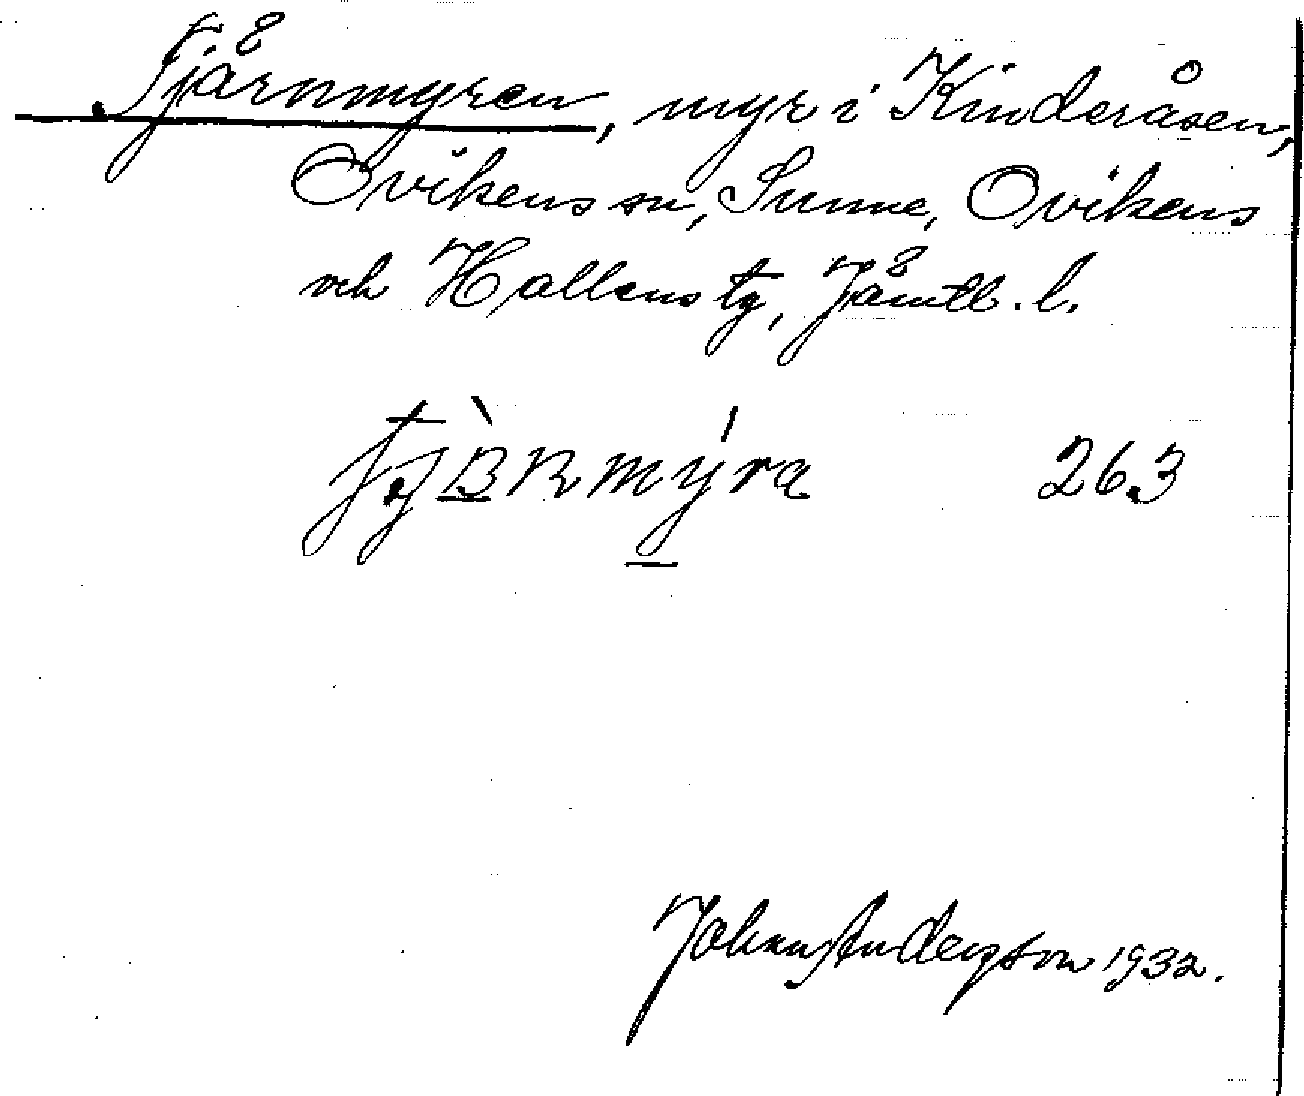 Tjärnmyren, myr i Kinderåsen,
Ovikens sn, Sunne, Ovikens
och Hallens tg, Jämtl. l.
263
Johan Anderson 1932.